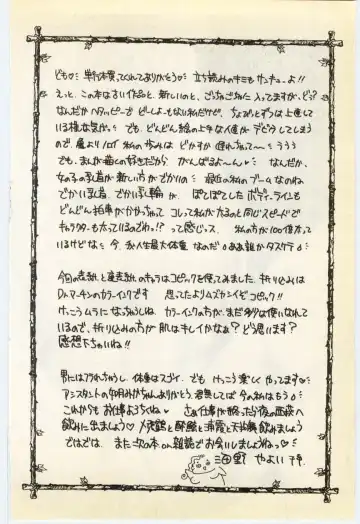 ども♡ 単行本買ってくれてありがとう♡ 立ち読みのキミもサンキューよ!!
えっと、この本は古い作品と、新しいのと、ごちゃごちゃに入ってますが、どう?
なんだかヘタッピーでどーしよーもない私だけど、ちょびっとずつは上達して
いる様な気が… でも、どんどん絵の上手な人達がデビューしてしまう
ので、亀よりノロイ私の歩みは
でも、まんが描くの好きだから がんばるよ〜ん♡ なんだか、
女の子の乳首が新しい方がでかいの 最近の私のブームなのね
でかい乳首、でかい乳輪が、ぽてぽてした ボディーラインも
どんどん拍車がかかっちゃって コレって私が太るのと同じスピードで
キャラクターも太っているのでわ!? って感じっス。 私の方が100倍太って
いるけどな 今、私、人生最大体重なのだ ああ誰かタスケテ
今回の表紙と裏表紙のキャラはコピックを使ってみました。折り込みは
Dr.マーチンのカラーインクです 思ってたよりムズカシイぞコピック!!
けっこうムラになっちゃうしね カラーインクの方が、まだ多少は使いなれて
いるので、折り込みの方が肌はキレイかなぁ? どう思います?
感想下ちゃいね!!
男にはフラれちゃうし、体重はスゴイ、でも けっこう楽しくやってます♡
アシスタントの卯月みかちゃんありがとう、君無しでは今の私はもう
これからもお仕事よろちくね♡ さあ仕事が終ったら
飲みに出ましょう♡ 飲みましょう
ではでは、また次の本or雑誌でお会いしましょうねっ♡
海野 やよい